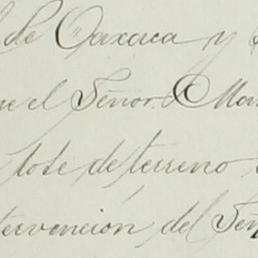 de Oaxaca y
el Señor
lote de terreno
tervención del Señ